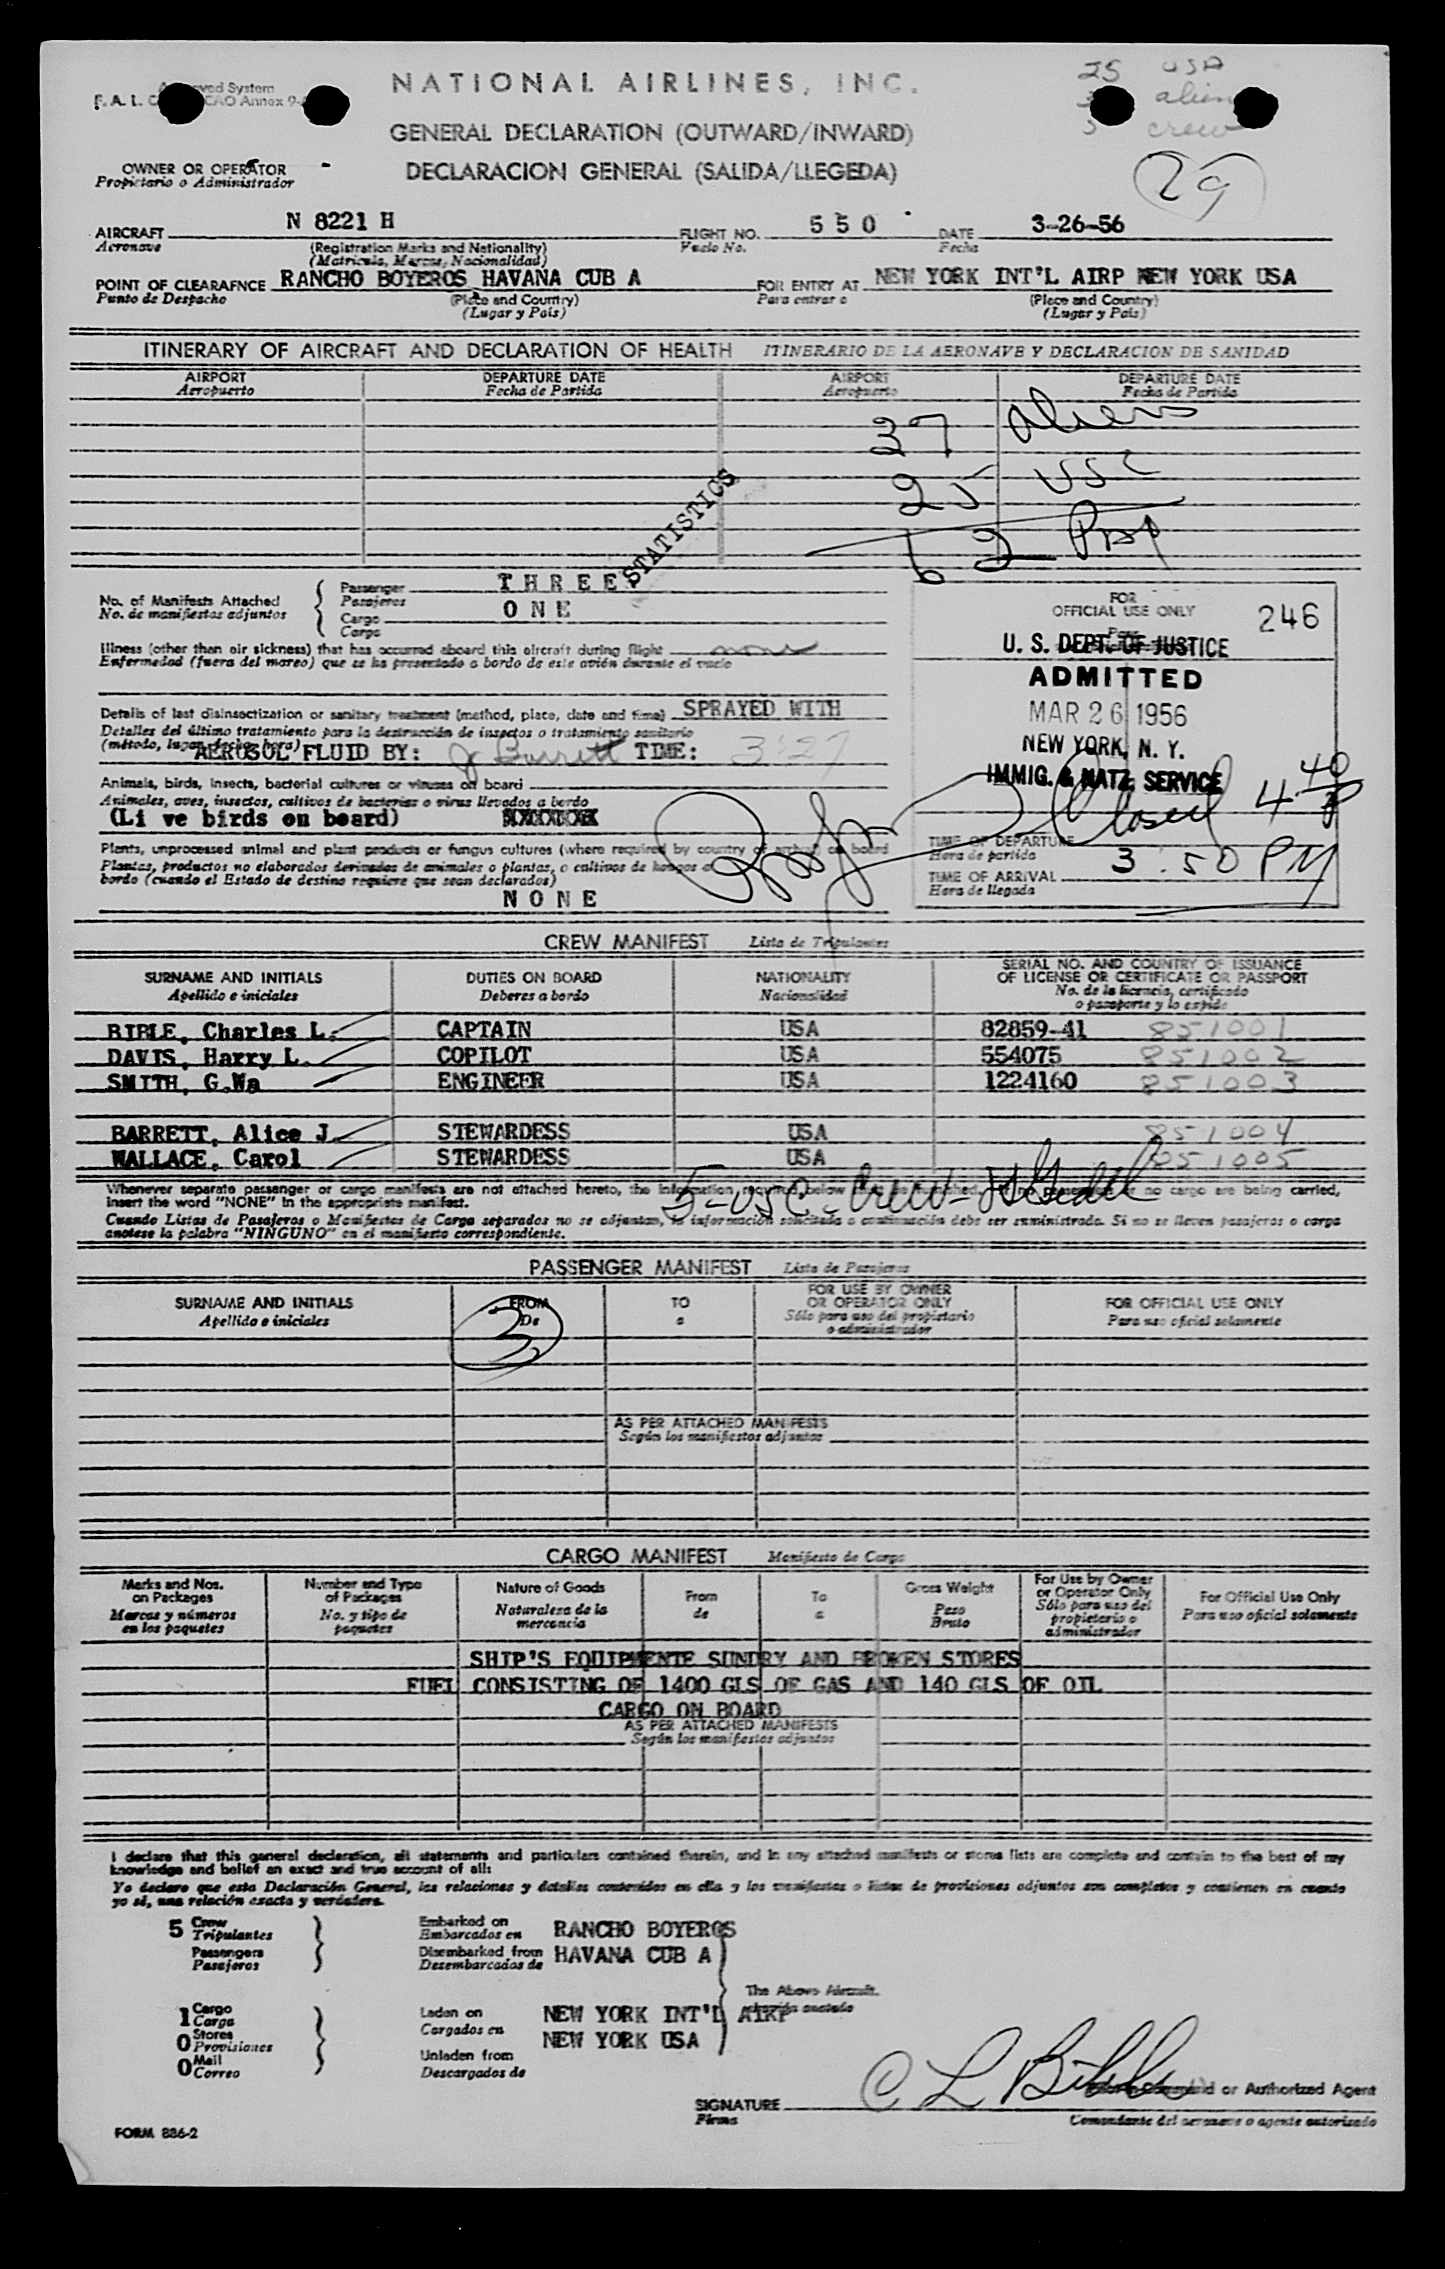 25 USA
alien
5 crew
29
F. A. L.
NATIONAL AIRLINES, INC.
GENERAL DECLARATION (OUTWARD/INWARD)
DECLARACION GENERAL (SALIDA/LLEGEDA)
OWNER OR OPERATOR
Propietario o Administrador
AIRCRAFT N 8221 H FLIGHT NO. 550 DATE 3-26-56
Aeronave (Registration Marks and Nationality) Vuelo No. Fecha
(Matricula, Marcas, Nacionalidad)
POINT OF CLEARAFNCE RANCHO BOYEROS HAVANA CUB A FOR ENTRY AT NEW YORK INT'L AIRP NEW YORK USA
Punto de Despacho (Place and Country) Para entrar a (Place and Country)
(Lugar y Pais) (Lugar y Pais)
ITINERARY OF AIRCRAFT AND DECLARATION OF HEALTH ITINERARIO DE LA AERONAVE Y DECLARACION DE SANIDAD
AIRPORT DEPARTURE DATE AIRPORT DEPARTURE DATE
Aeropuerto Fecha de Partida Aeropuerto Fecha de Partida
37 aliens
25 USC
62
STATISTICS
No. of Manifests Attached
No. de manifiestas adjuntos
Passenger THREE
Pasajeros
Cargo ONE
Cargo
Illness (other than air sickness) that has occurred aboard this aircraft during flight none
Enfermedad (fuera del mareo) que se ha presentado a bordo de este avión durante el vuelo
Details of last disinsectization or sanitary treatment (method, place, date and time) SPRAYED WITH
Detalles del último tratamiento para la destrucción de insectos o tratamiento sanitario
(método, lugar, fecha, hora)
AEROSOL FLUID BY: J Barrett TIME: 3:27
Animals, birds, insects, bacterial cultures or viruses on board
Animales, aves, insectos, cultivos de bacterias o virus llevados a bordo
(Li ve birds on board)
Plants, unprocessed animal and plant products or fungus cultures (where required by country of arrival) on board
Plantas, productos no elaborados derivados de animales o plantas, o cultivos de hongos a
bordo (cuando el Estado de destino requiere que sean declarados)
NONE
FOR
OFFICIAL USE ONLY 246
U. S. DEPT. OF JUSTICE
ADMITTED
MAR 26 1956
NEW YORK, N. Y.
IMMIG. & NATZ. SERVICE
Closed 4 40 P
TIME OF DEPARTURE
Hora de partida 3:50 PM
TIME OF ARRIVAL
Hora de llegada
CREW MANIFEST Lista de Tripulantes
SURNAME AND INITIALS DUTIES ON BOARD NATIONALITY SERIAL NO. AND COUNTRY OF ISSUANCE
OF LICENSE OR CERTIFICATE OR PASSPORT
Apellido e iniciales Deberes a bordo Nacionalidad No. de la licencia, certificado
o pasaporte y lo expide
BIBLE, Charles L. CAPTAIN USA 82859-41 851001
DAVIS, Harry L. COPILOT USA 554075 851002
SMITH, G.Wa ENGINEER USA 1224160 851003
BARRETT, Alice J. STEWARDESS USA 851004
WALLACE, Carol STEWARDESS USA 851005
5-USC-Crew-
Whenever separate passenger or cargo manifests are not attached hereto, the information required below no cargo are being carried,
insert the word "NONE" in the appropriate manifest.
Cuando Listas de Pasajeros o Manifiestos de Carga separados no se adjuntan, la información solicitada a continuación debe ser suministrada. Si no se llevan pasajeros o carga
anotese la palabra "NINGUNO" en el manifiesto correspondiente.
PASSENGER MANIFEST Lista de Pasajeros
SURNAME AND INITIALS FROM TO FOR USE BY OWNER
OR OPERATOR ONLY FOR OFFICIAL USE ONLY
Apellido e iniciales De a Sólo para uso del propietario
o administrador Para uso oficial solamente
3
AS PER ATTACHED MANIFESTS
Según los manifiestos adjuntos
CARGO MANIFEST Manifiesto de Carga
Marks and Nos.
on Packages Number and Type
of Packages Nature of Goods From To Gross Weight For Use by Owner
or Operator Only For Official Use Only
Marcas y números
en los paquetes No. y tipo de
paquetes Naturaleza de la
mercancia de a Peso
Bruto Sólo para uso del
propietario o
administrador Para uso oficial solamente
SHIP'S EQUIPMENTE SUNDRY AND BROKEN STORES
FUEL CONSISTING OF 1400 GLS OF GAS AND 140 GLS OF OIL
CARGO ON BOARD
AS PER ATTACHED MANIFESTS
Según los manifiestos adjuntos
I declare that this general declaration, all statements and particulars contained therein, and in any attached manifests or stores lists are complete and contain to the best of my
knowledge and belief an exact and true account of all:
Yo declaro que esta Declaración General, las relaciones y detalles contenidos en ella y los manifiestos o listas de provisiones adjuntos son completos y contienen en cuanto
yo sé, una relación exacta y verdadera.
5 Crew
Tripulantes
Passengers
Pasajeros
Embarked on RANCHO BOYEROS
Embarcados en
Disembarked from HAVANA CUB A
Desembarcados de
The Above Aircraft.
1 Cargo
Carga
0 Stores
Provisiones
0 Mail
Correo
Laden on NEW YORK INT'L AIRP
Cargados en
NEW YORK USA
Unladen from
Descargados de
SIGNATURE C L Bible or Authorized Agent
Firma Comandante del aeronave o agente autorizado
FORM 886-2